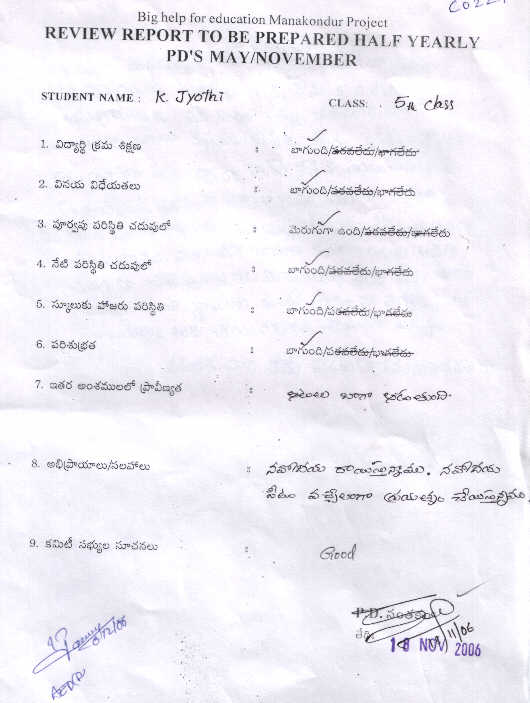 Big help for education Manakondur Project
REVIEW REPORT TO BE PREPARED HALF YEARLY
PD'S MAY/NOVEMBER
STUDENT NAME : K. Jyothi CLASS: . 5th class
1. విద్యార్థి క్రమ శిక్షణ : బాగుంది/పరవలేదు/బాగలేదు
2. వినయ విధేయతలు : బాగుంది/పరవలేదు/బాగలేదు
3. పూర్వపు పరిస్థితి చదువులో : మెరుగుగా ఉంది/పరవలేదు/బాగలేదు
4. నేటి పరిస్థితి చదువులో : బాగుంది/పరవలేదు/బాగలేదు
5. స్కూలుకు హాజరు పరిస్థితి : బాగుంది/పరవలేదు/బాగలేదు
6. పరిశుభ్రత : బాగుంది/పరవలేదు/బాగలేదు
7. ఇతర అంశములలో ప్రావీణ్యత :
8. అభిప్రాయాలు/సలహాలు : నవోదయ రాయిస్తున్నాము. నవోదయ
సీటు వచ్చేలాగా ప్రయత్నం చేయిస్తున్నాము.
9. కమిటీ సభ్యుల సూచనలు : Good
P.D. సంతకం
తేది
18 NOV 2006